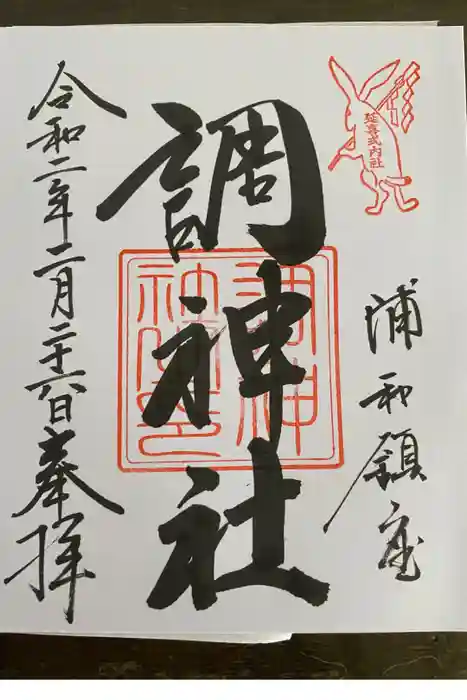 延喜式内社
浦和鎮座
調神社
令和二年二月二十六日奉拝